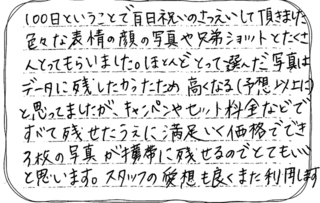 100日ということで百日祝いのさつえいして頂きました
色々な表情の顔の写真や兄弟ショットとたくさ
んとってもらいました。ほとんどとって選んだ写真は
データに残したかったため高くなる(予想以上に)
と思ってましたが、キャンペンやセット料金などで
すべて残せたうえに満足いく価格ででき
3枚の写真が携帯に残せるのでとてもいい
と思います。スタッフの愛想も良くまた利用します